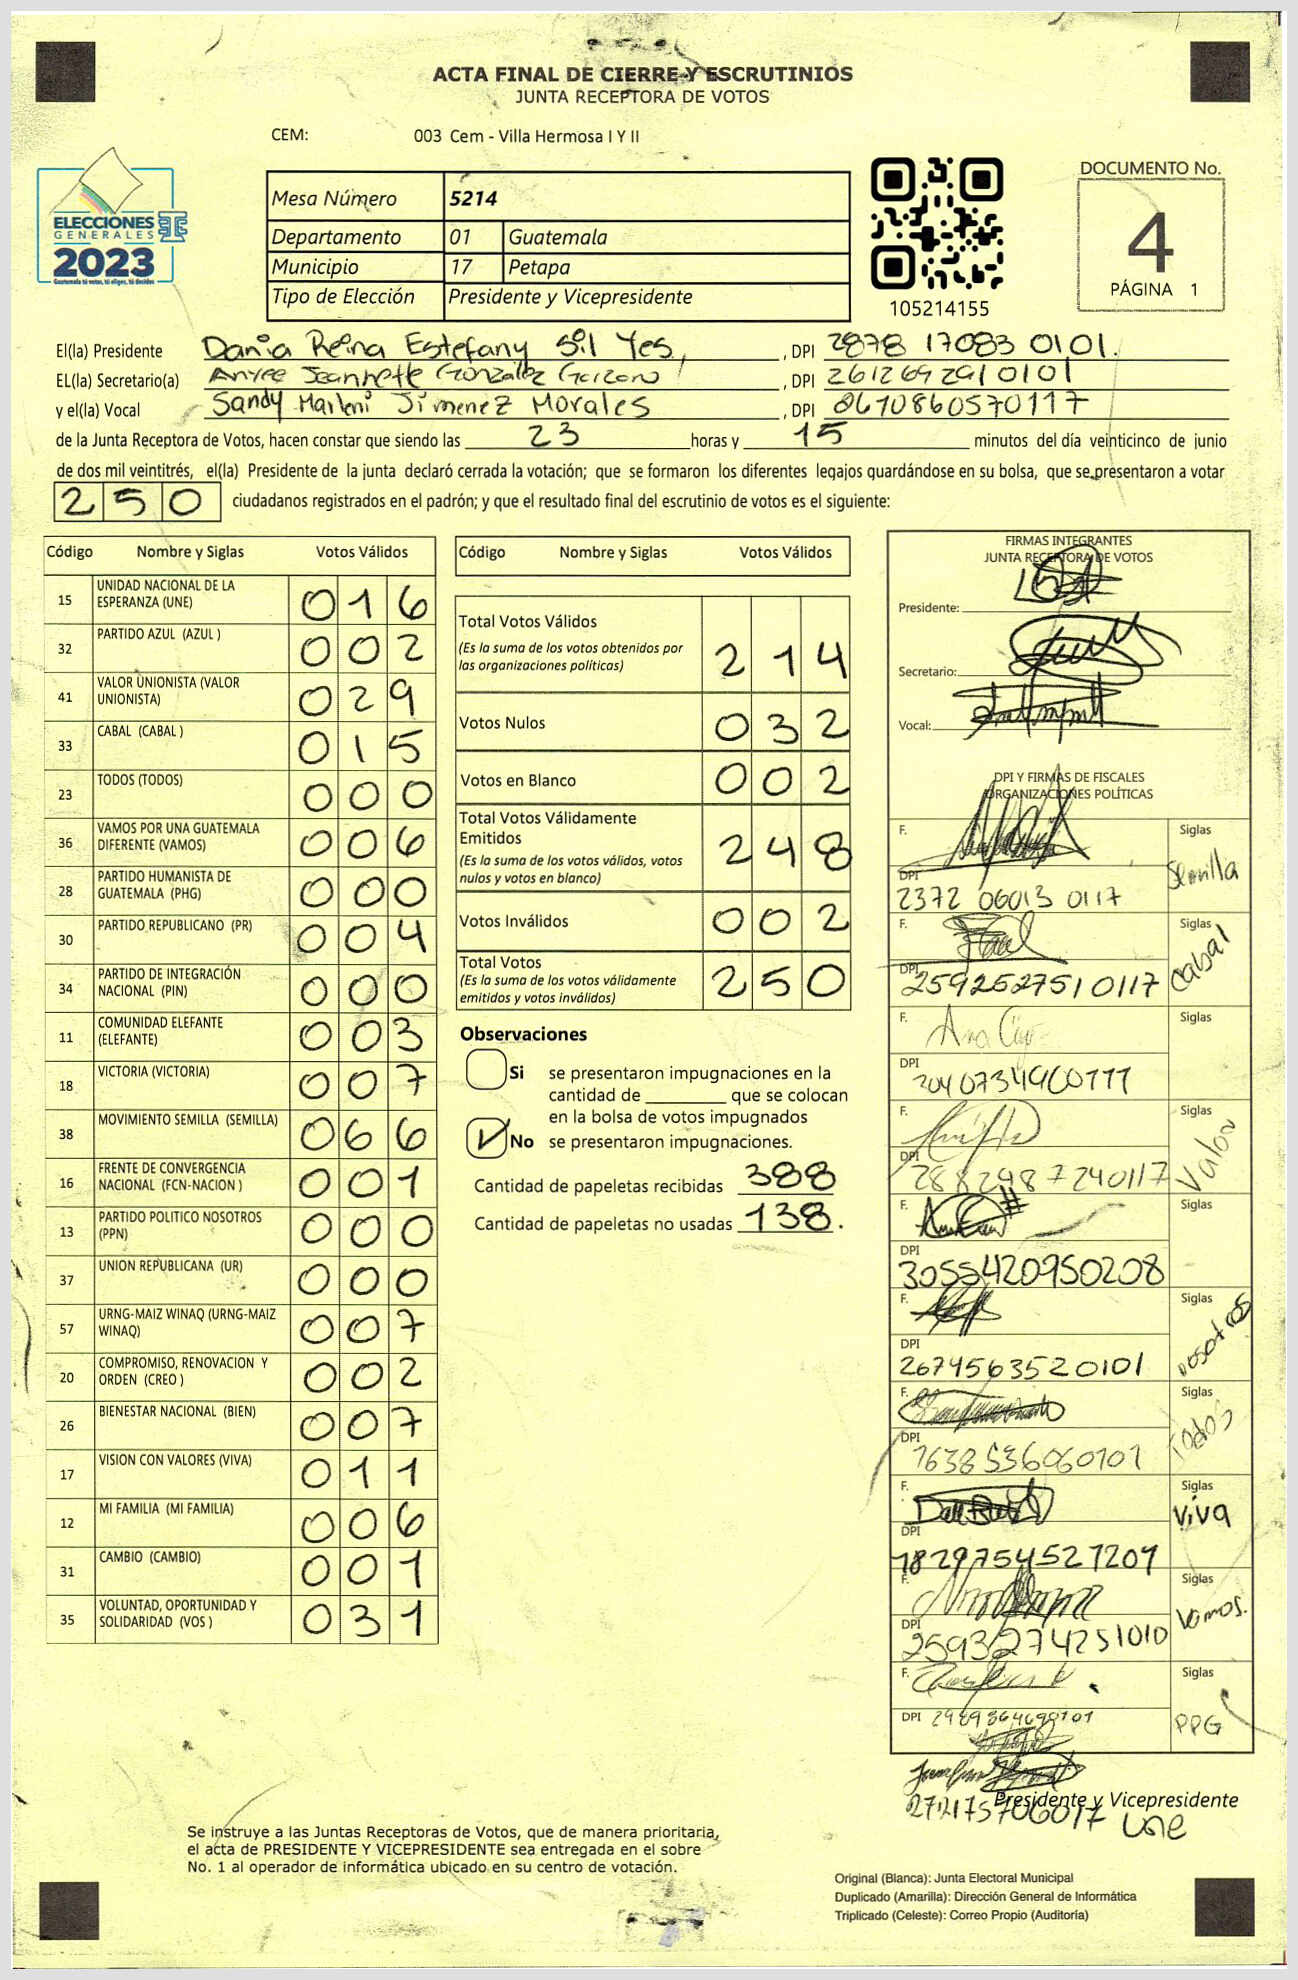 ACTA FINAL DE CIERRE Y ESCRUTINIOS
JUNTA RECEPTORA DE VOTOS
CEM: 003 Cem - Villa Hermosa I Y II
ELECCIONES
GENERALES
2023
Guatemala tú votas, tú eliges, tú decides
Mesa Número 5214
Departamento 01 Guatemala
Municipio 17 Petapa
Tipo de Elección Presidente y Vicepresidente
105214155
DOCUMENTO No.
4
PÁGINA 1
El(la) Presidente Dania Reina Estefany Sil Yes, , DPI 2878 17083 0101.
EL(la) Secretario(a) Jeannette González , DPI 2612692910101
y el(la) Vocal Sandy Marleni Jimenez Morales , DPI 8670860570117
de la Junta Receptora de Votos, hacen constar que siendo las 23 horas y 15 minutos del día veinticinco de junio
de dos mil veintitrés, el(la) Presidente de la junta declaró cerrada la votación; que se formaron los diferentes legajos guardándose en su bolsa, que se presentaron a votar
250 ciudadanos registrados en el padrón; y que el resultado final del escrutinio de votos es el siguiente:
Código Nombre y Siglas Votos Válidos
15 UNIDAD NACIONAL DE LA ESPERANZA (UNE) 016
32 PARTIDO AZUL (AZUL ) 002
41 VALOR UNIONISTA (VALOR UNIONISTA) 029
33 CABAL (CABAL ) 015
23 TODOS (TODOS) 000
36 VAMOS POR UNA GUATEMALA DIFERENTE (VAMOS) 006
28 PARTIDO HUMANISTA DE GUATEMALA (PHG) 000
30 PARTIDO REPUBLICANO (PR) 004
34 PARTIDO DE INTEGRACIÓN NACIONAL (PIN) 000
11 COMUNIDAD ELEFANTE (ELEFANTE) 003
18 VICTORIA (VICTORIA) 007
38 MOVIMIENTO SEMILLA (SEMILLA) 066
16 FRENTE DE CONVERGENCIA NACIONAL (FCN-NACION ) 001
13 PARTIDO POLITICO NOSOTROS (PPN) 000
37 UNION REPUBLICANA (UR) 000
57 URNG-MAIZ WINAQ (URNG-MAIZ WINAQ) 007
20 COMPROMISO, RENOVACION Y ORDEN (CREO ) 002
26 BIENESTAR NACIONAL (BIEN) 007
17 VISION CON VALORES (VIVA) 011
12 MI FAMILIA (MI FAMILIA) 006
31 CAMBIO (CAMBIO) 001
35 VOLUNTAD, OPORTUNIDAD Y SOLIDARIDAD (VOS ) 031
Código Nombre y Siglas Votos Válidos
Total Votos Válidos 214
(Es la suma de los votos obtenidos por
las organizaciones políticas)
Votos Nulos 032
Votos en Blanco 002
Total Votos Válidamente
Emitidos 248
(Es la suma de los votos válidos, votos
nulos y votos en blanco)
Votos Inválidos 002
Total Votos 250
(Es la suma de los votos válidamente
emitidos y votos inválidos)
Observaciones
Si se presentaron impugnaciones en la
cantidad de ________ que se colocan
en la bolsa de votos impugnados
No se presentaron impugnaciones.
Cantidad de papeletas recibidas 388
Cantidad de papeletas no usadas 138.
FIRMAS INTEGRANTES
JUNTA RECEPTORA DE VOTOS
Presidente:
Secretario:
Vocal:
DPI Y FIRMAS DE FISCALES
ORGANIZACIONES POLÍTICAS
F. Siglas Semilla
DPI 2372 06013 0117
F. Siglas Cabal
DPI 2592527510117
F. Siglas
DPI 2040734900111
F. Siglas Valor
DPI 2882987240117
F. Siglas
DPI 3055420950208
F. Siglas nosotros
DPI 2674563520101
F. Siglas Todos
DPI 1638536060101
F. Siglas Viva
DPI 1829754521209
F. Siglas Vamos.
DPI 2593274251010
F. Siglas PPG
DPI
Presidente y Vicepresidente
une
Se instruye a las Juntas Receptoras de Votos, que de manera prioritaria,
el acta de PRESIDENTE Y VICEPRESIDENTE sea entregada en el sobre
No. 1 al operador de informática ubicado en su centro de votación.
Original (Blanca): Junta Electoral Municipal
Duplicado (Amarilla): Dirección General de Informática
Triplicado (Celeste): Correo Propio (Auditoría)